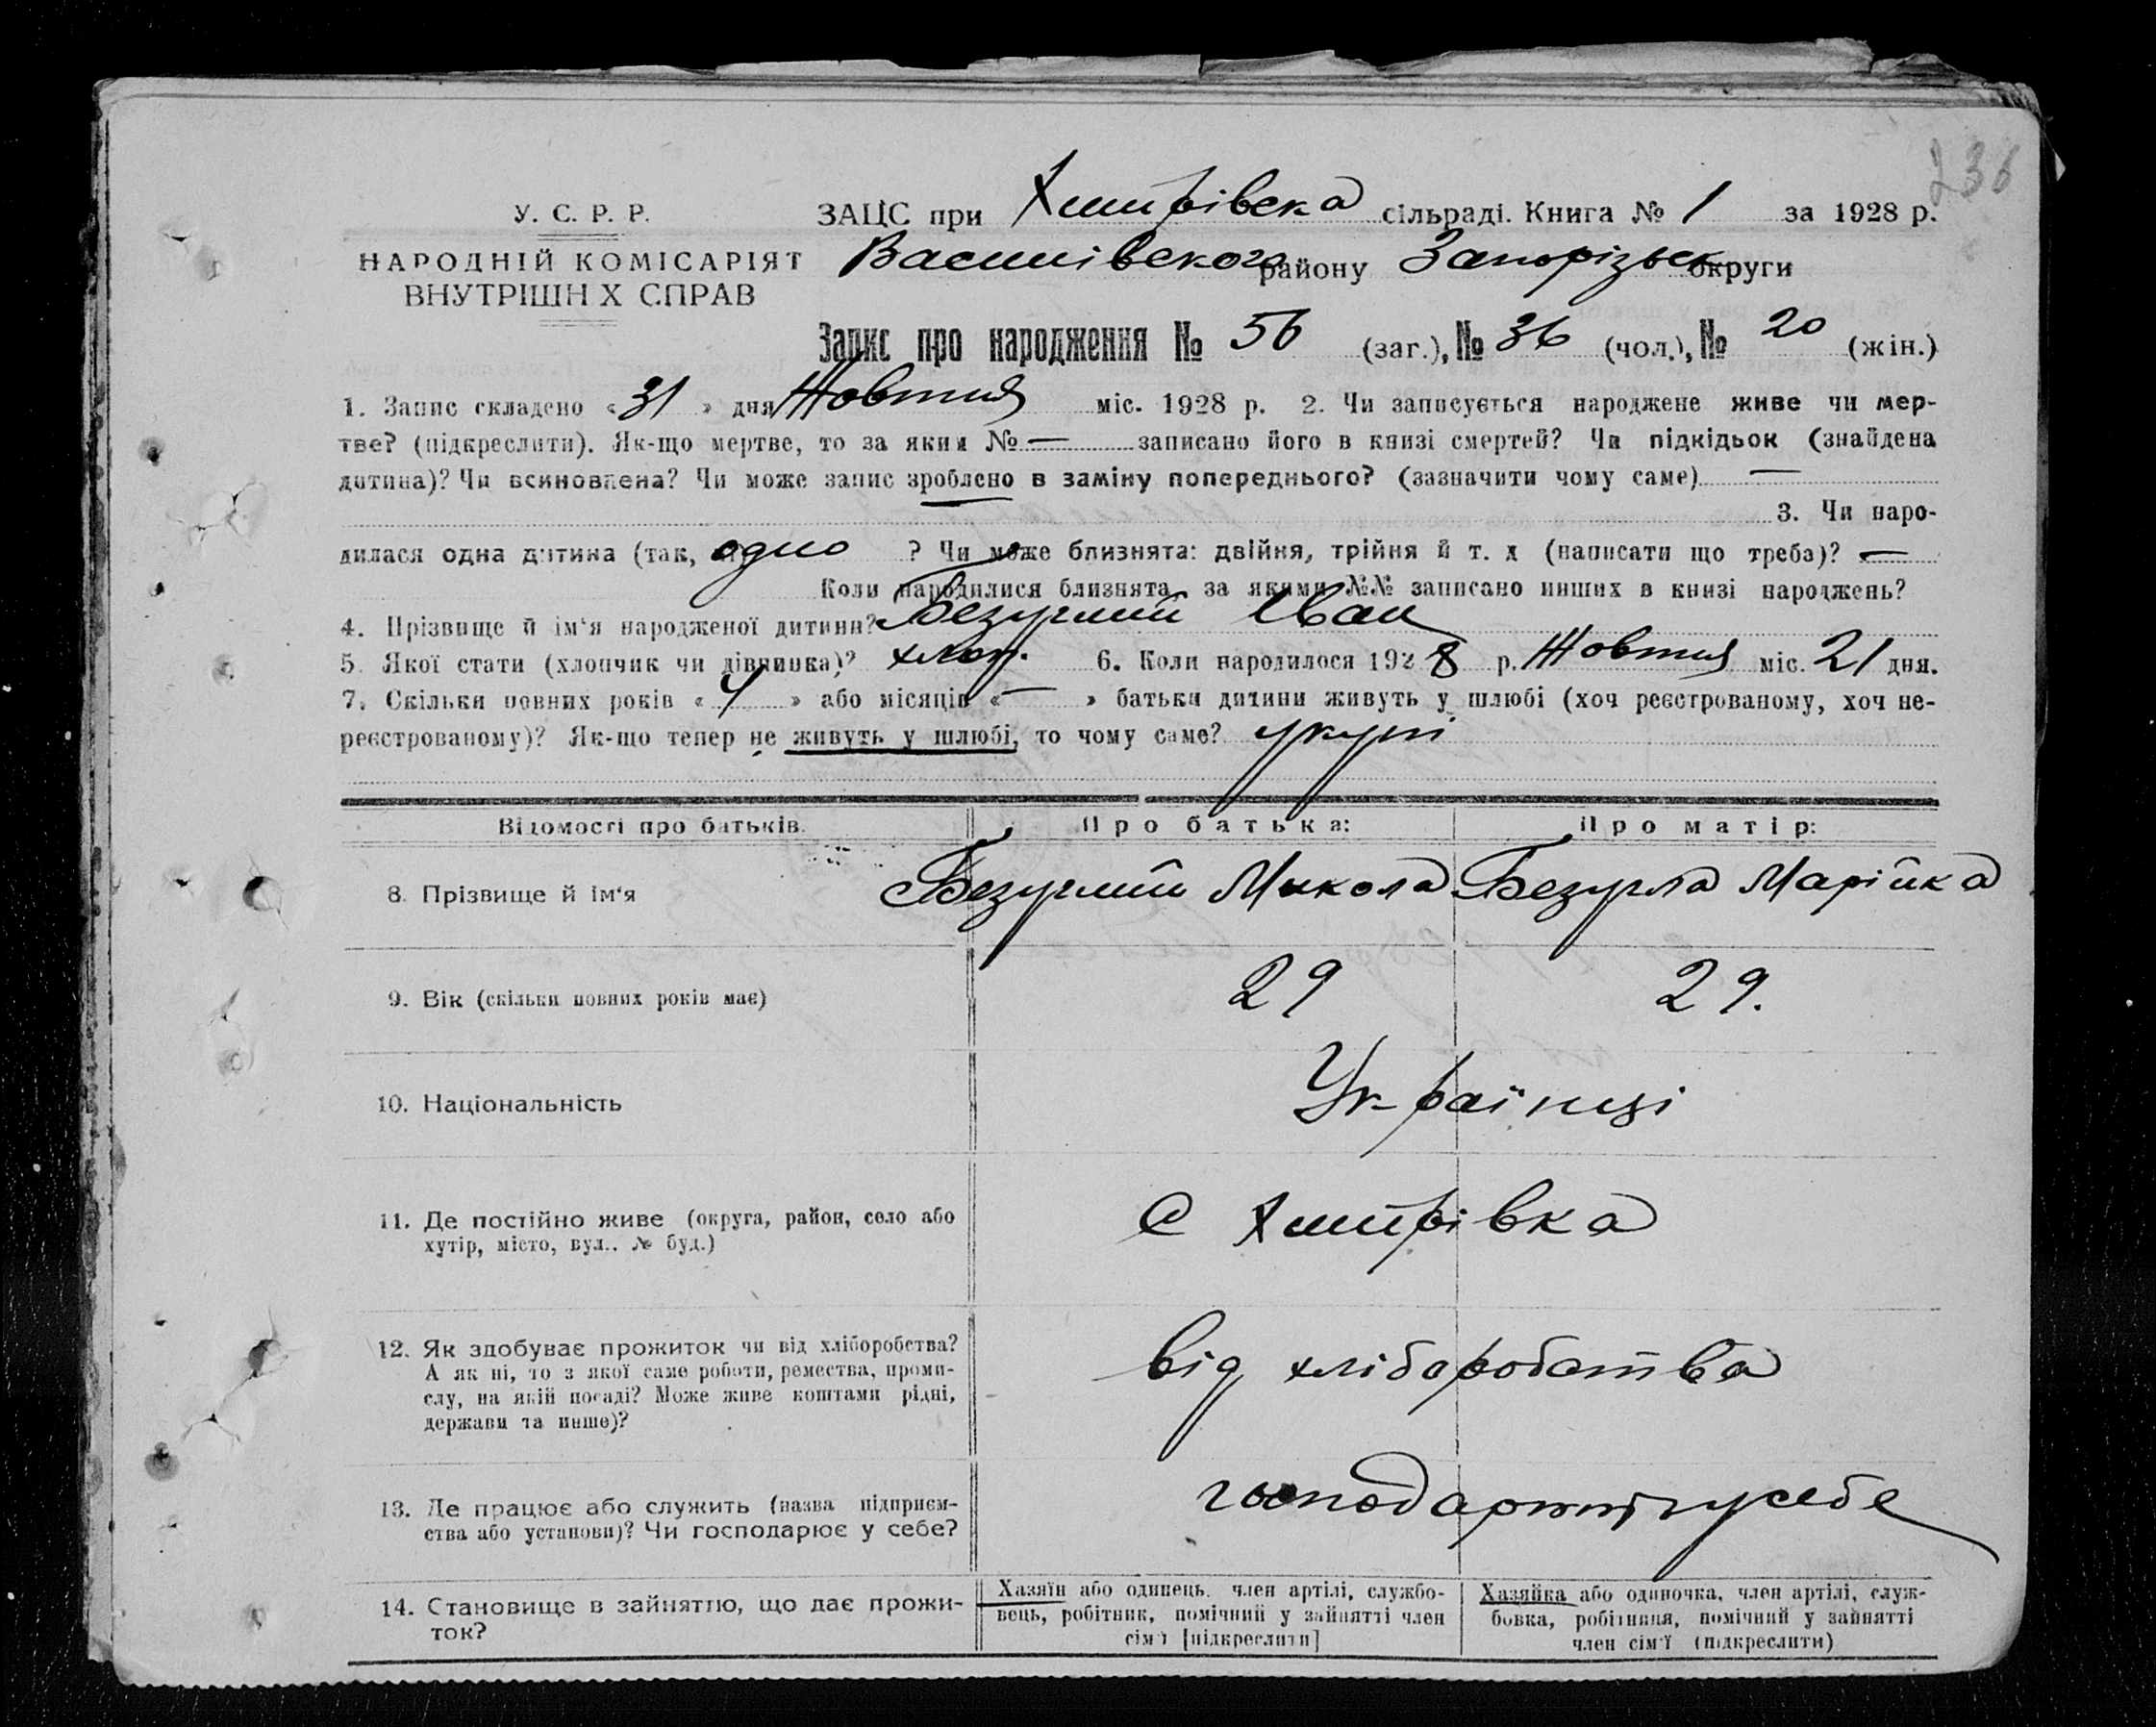 236
У. С. Р. Р.
ЗАЦС при Хмитрівска сільраді. Книга № 1 за 1928 р.
НАРОДНІЙ КОМІСАРІЯТ
Василівского району Запорізьк округи
ВНУТРІШН Х СПРАВ
Запис про народження № 56 (заг.), № 36 (чол.), № 20 (жін.)
1. Запис складено «31» дня Жовтня міс. 1928 р. 2. Чи записується народжене живе чи мер-
тве? (підкреслити). Як-що мертве, то за яким № — записано його в книзі смертей? Чи підкідьок (знайдена
дитина)? Чи всиновлена? Чи може запис зроблено в заміну попереднього? (зазначити чому саме) —
3. Чи наро-
дилася одна дитина (так, одно ? Чи може близнята: двійня, трійня й т. д (написати що треба)? —
Коли народилися близнята, за якими №№ записано инших в книзі народжень?
4. Прізвище й ім'я народженої дитини? Безуглий Іван
5. Якої стати (хлопчик чи дівчинка)? хлоп. 6. Коли народилося 1928 р. Жовтня міс. 21 дня.
7. Скільки повних років «4» або місяців «—» батьки дитини живуть у шлюбі (хоч реєстрованому, хоч не-
реєстрованому)? Як-що тепер не живуть у шлюбі, то чому саме? укупі
Відомості про батьків. Про батька: Про матір:
8. Прізвище й ім'я Безуглий Микола Безугла Марійка
9. Вік (скільки повних років має) 29 29.
10. Національність Українці
11. Де постійно живе (округа, район, село або
хутір, місто, вул.. № буд.)
С Хмитрівка
12. Як здобуває прожиток чи від хліборобства?
А як ні, то з якої саме роботи, ремества, проми-
слу, на якій посаді? Може живе коштами рідні,
держави та инше)?
від хліборобства
13. Де працює або служить (назва підприєм-
ства або установи)? Чи господарює у себе?
у себе
14. Становище в зайнятлю, що дає прожи-
ток?
Хазяїн або одинець, член артілі, службо-
вець, робітник, помічний у зайнятті член
сім'ї [підкреслити]
Хазяйка або одиночка, член артілі, служ-
бовка, робітниця, помічний у зайнятті
член сім'ї (підкреслити)